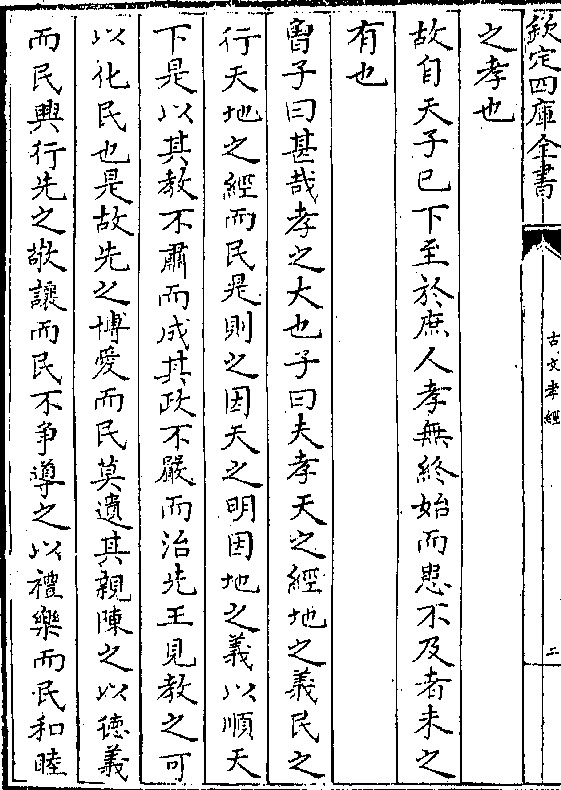 欽定四庫全書
古文孝經
二
之孝也
故自天子已下至於庶人孝無終始而患不及者未之
有也
曾子曰甚哉孝之大也子曰夫孝天之經地之義民之
行天地之經而民是則之因天之明因地之義以順天
下是以其教不肅而成其政不嚴而治先王見教之可
以化民也是故先之博愛而民莫遺其親陳之以德義
而民興行先之敬讓而民不爭導之以禮樂而民和睦